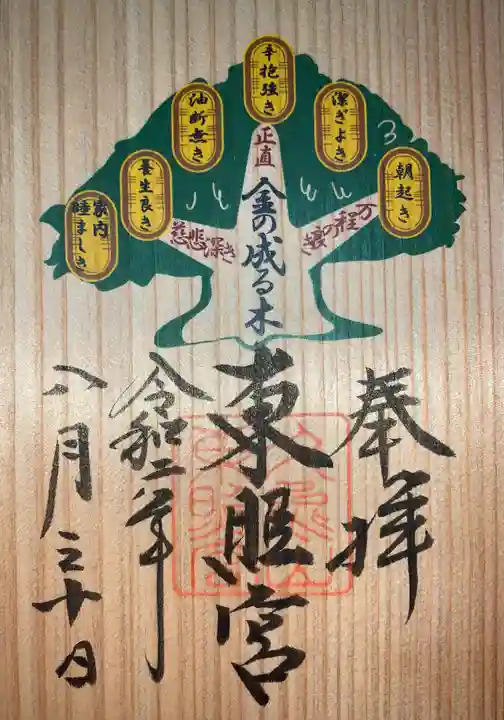 朝起き
潔ぎよき
辛抱強き
油断無き
養生良き
家内
睦ましき
万程の
正直
慈悲深き
金の成る木
奉拝
東照宮
令和二年
八月三十日